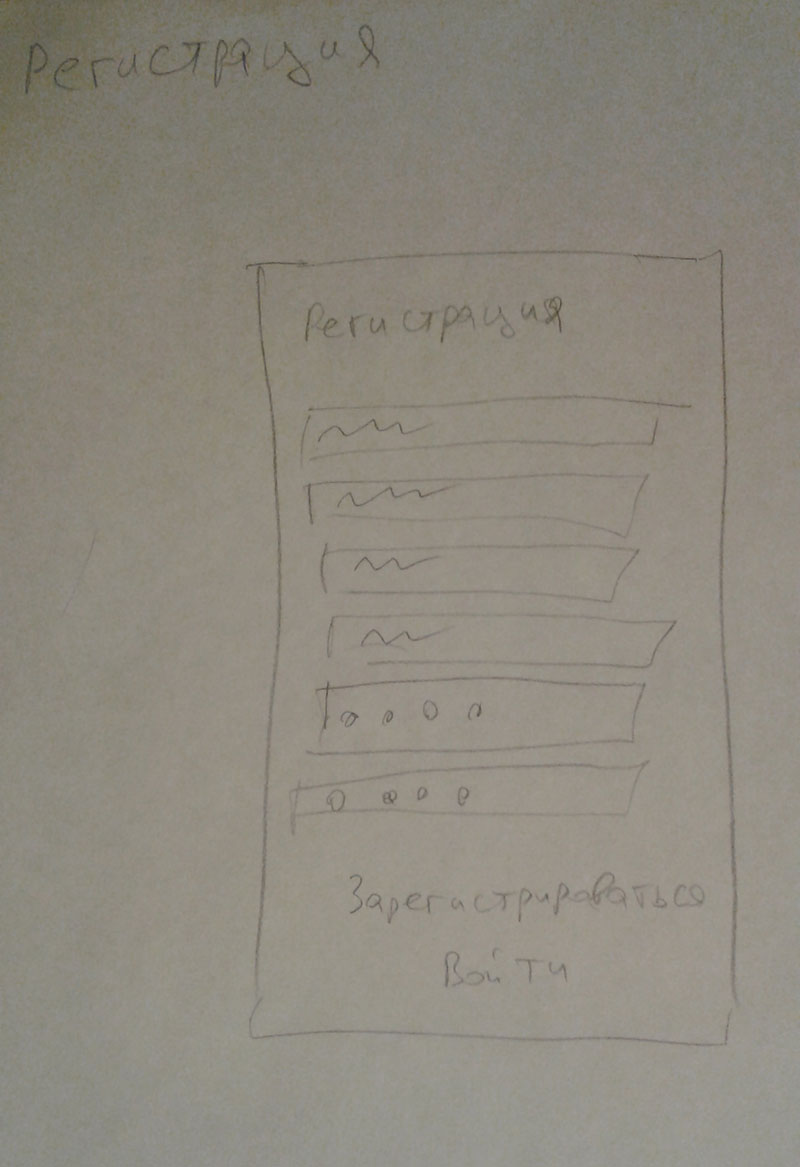 Регистрация
Регистрация
Зарегистрироваться
Войти